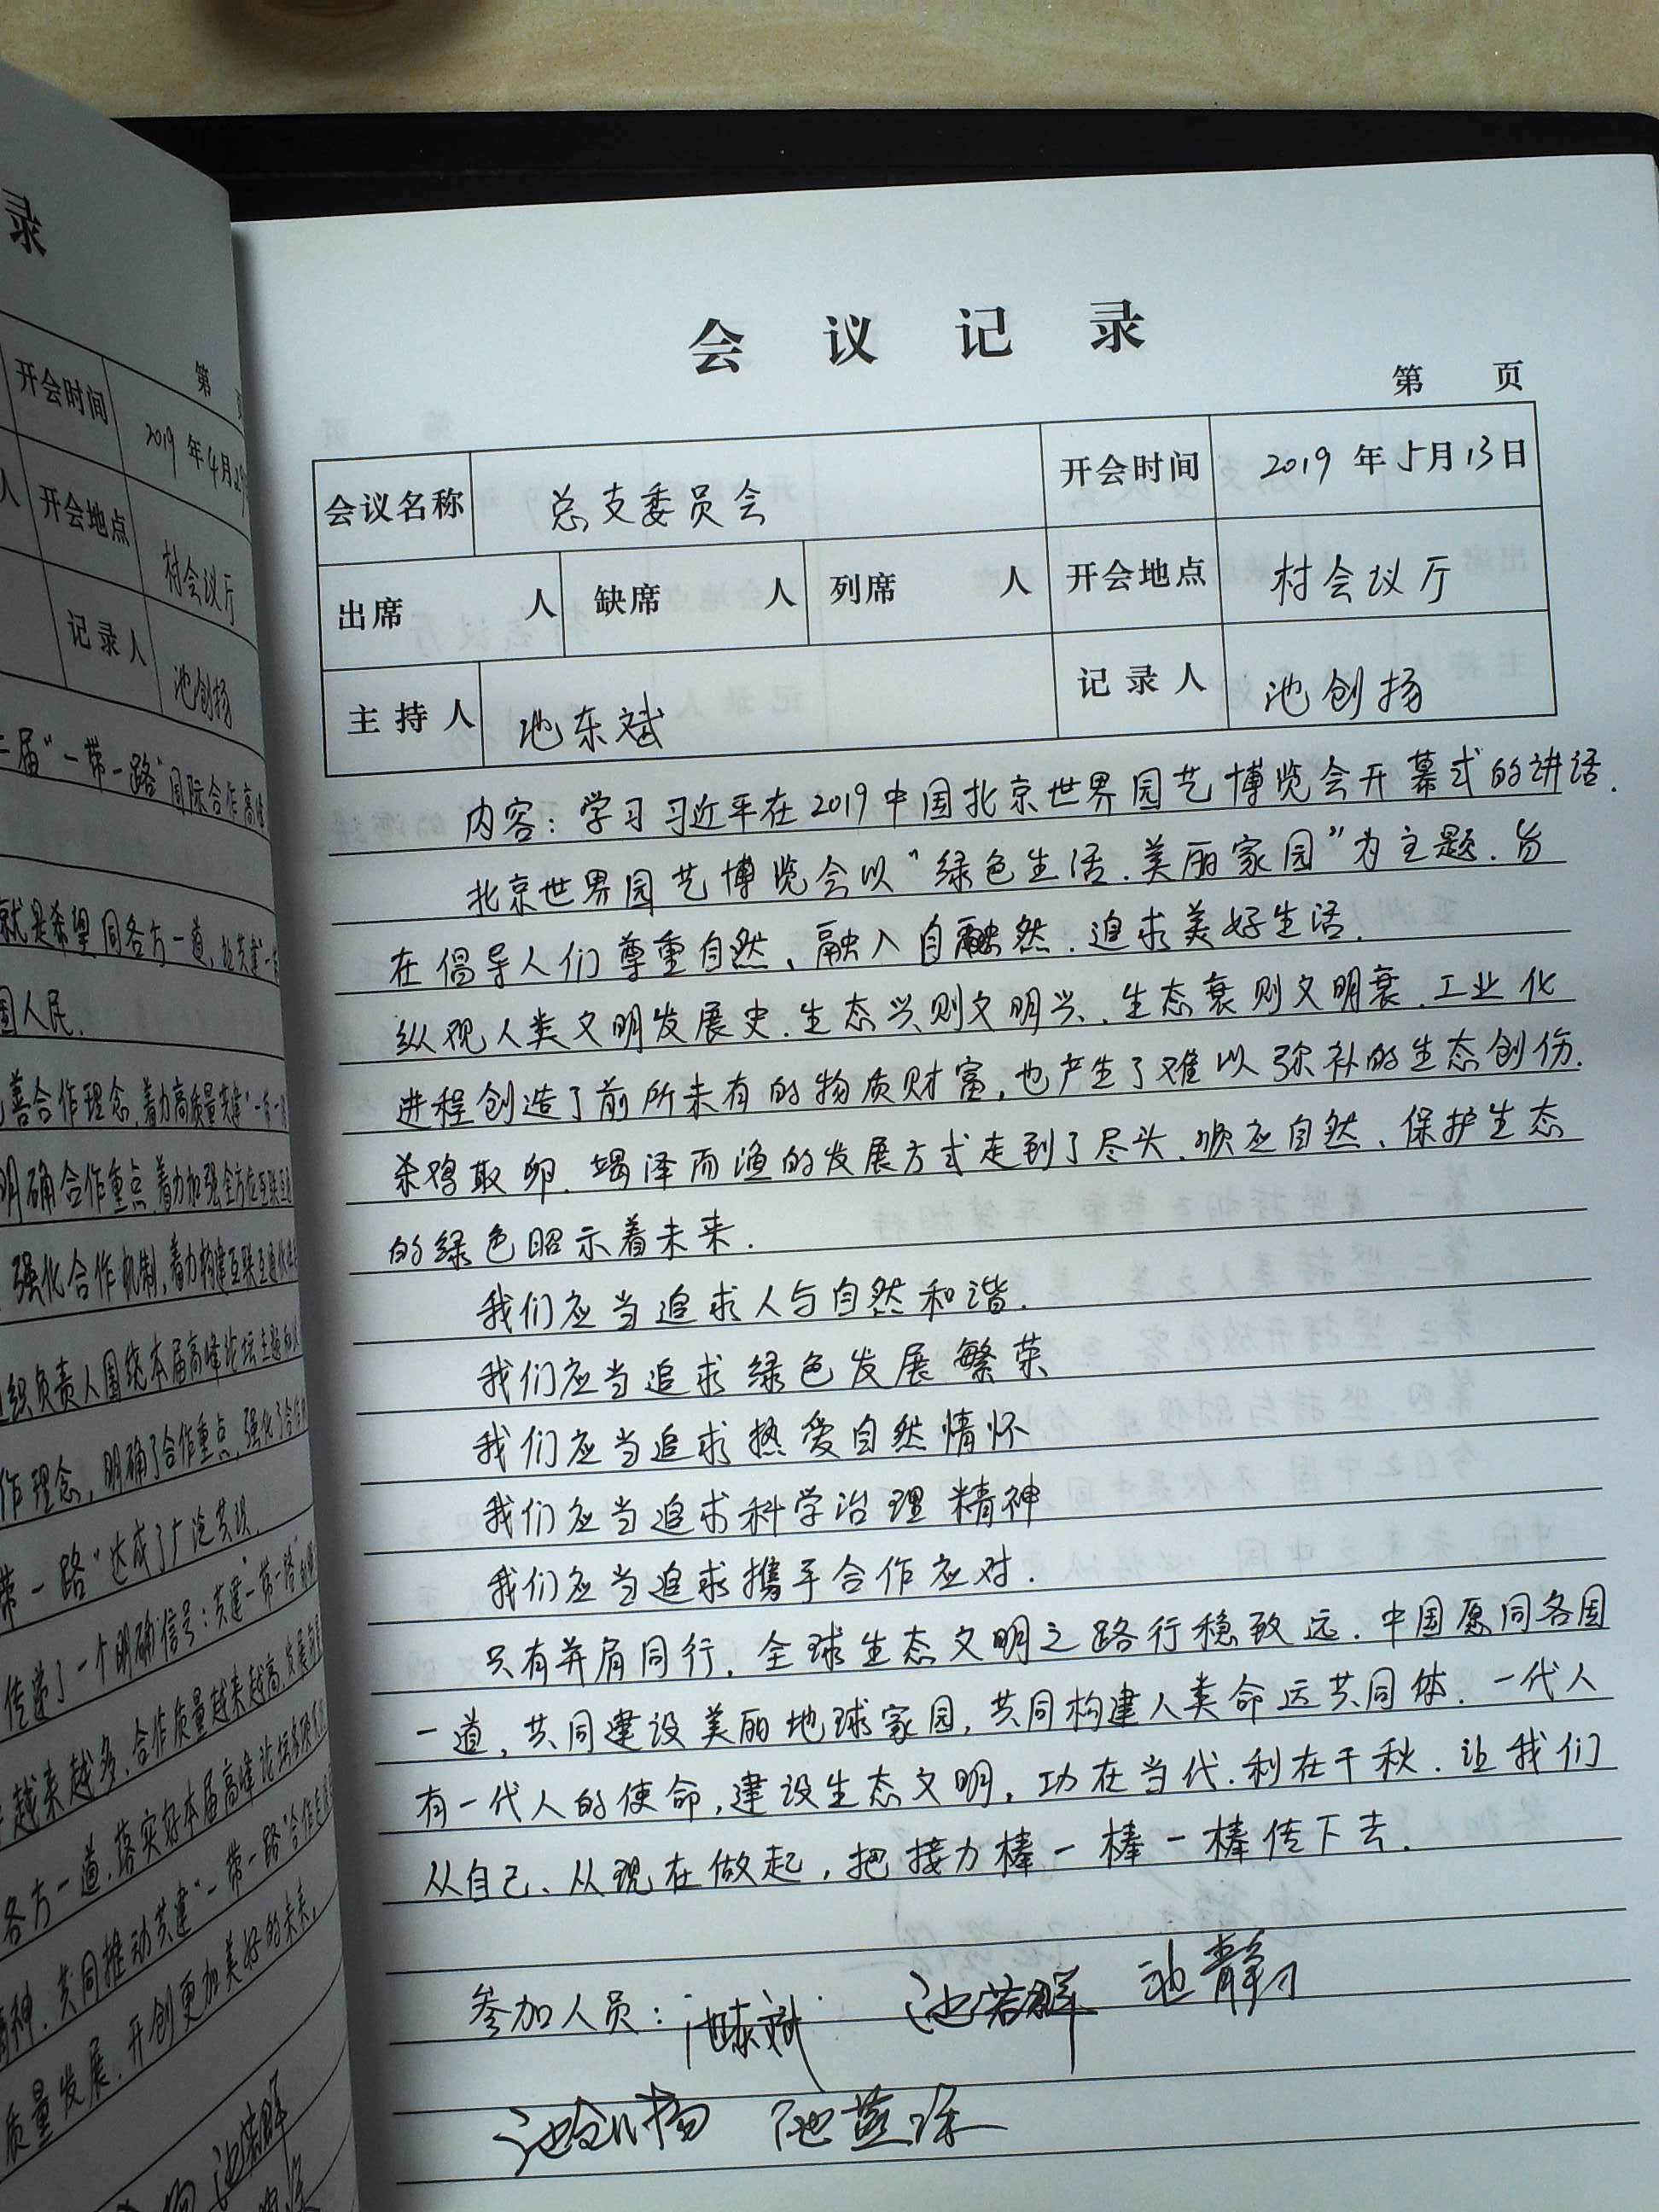 录
第
开会时间
2019年4月29
人
开会地点
村会议厅
记录人
池创扬
二届“一带一路”国际合作高峰
就是希望同各方一道,让共建“一带
国人民.
善合作理念,着力高质量共建“一带一路
明确合作重点,着力加强全方位互联互
强化合作机制,着力构建互联互通伙伴
组织负责人围绕本届高峰论坛主题
作理念,明确了合作重点,强化了合作
带一路”达成了广泛共识.
传递了一个明确信号:共建“一带一路”
越来越多,合作质量越来越高,发展
各方一道,落实好本届高峰论坛
精神,共同推动共建“一带一路”合作
质量发展,开创更加美好的未来.
会议记录
第 页
会议名称 总支委员会 开会时间 2019年5月13日
出席 人 缺席 人 列席 人 开会地点 村会议厅
主持人 池东斌 记录人 池创扬
内容:学习习近平在2019中国北京世界园艺博览会开幕式的讲话.
北京世界园艺博览会以“绿色生活.美丽家园”为主题.旨
在倡导人们尊重自然、融入自然.追求美好生活.
纵观人类文明发展史.生态兴则文明兴、生态衰则文明衰.工业化
进程创造了前所未有的物质财富,也产生了难以弥补的生态创伤.
杀鸡取卵.竭泽而渔的发展方式走到了尽头.顺应自然、保护生态
的绿色昭示着未来.
我们应当追求人与自然和谐.
我们应当追求绿色发展繁荣
我们应当追求热爱自然情怀
我们应当追求科学治理精神
我们应当追求携手合作应对.
只有并肩同行.全球生态文明之路行稳致远.中国愿同各国
一道,共同建设美丽地球家园,共同构建人类命运共同体.一代人
有一代人的使命,建设生态文明,功在当代.利在千秋.让我们
从自己、从现在做起,把接力棒一棒一棒传下去.
参加人员:池东斌 池若群 池静
池创扬